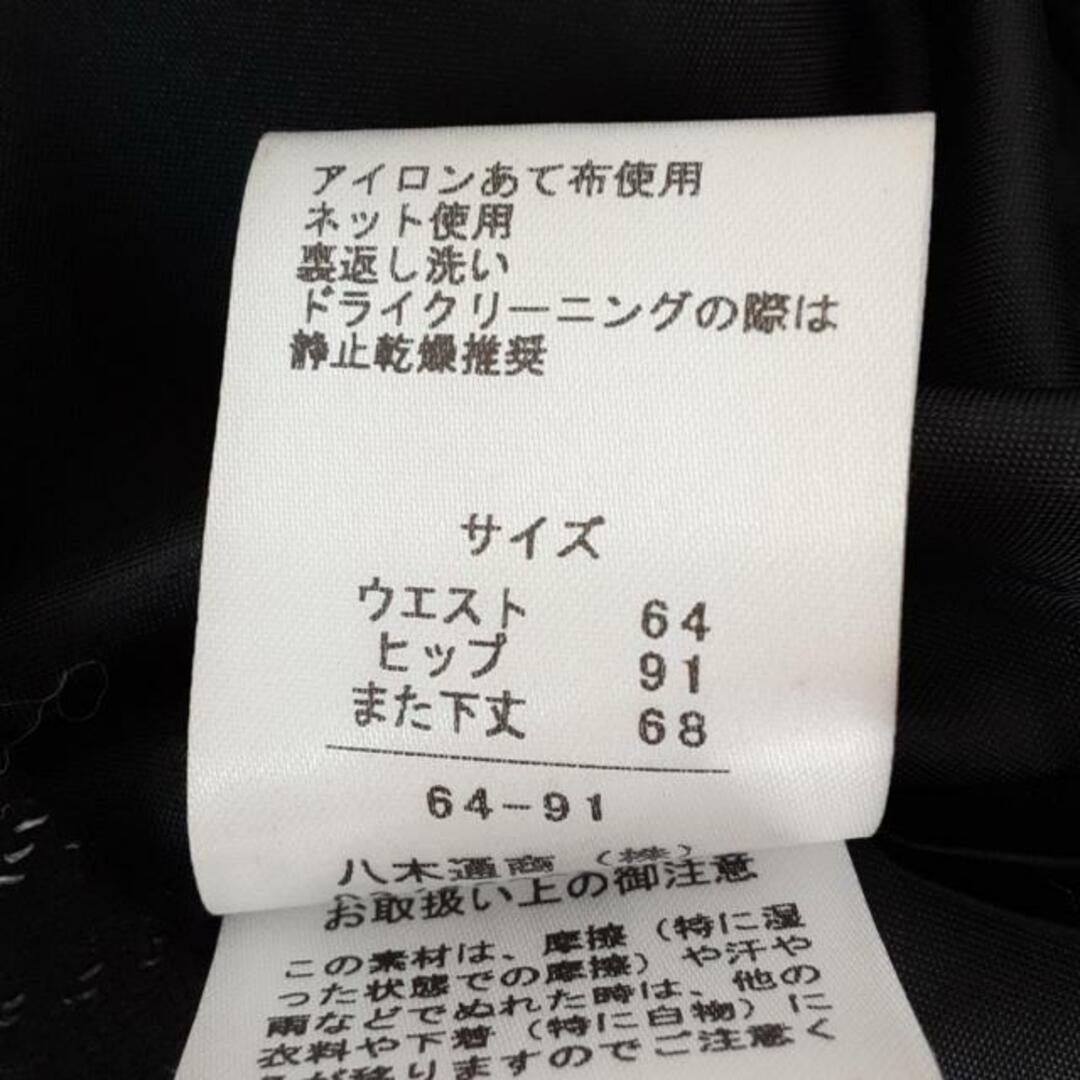 アイロンあて布使用
ネット使用
裏返し洗い
ドライクリーニングの際は
静止乾燥推奨
サイズ
ウエスト 64
ヒップ 91
また下丈 68
64-91
八木通商（株）
お取扱い上の御注意
この素材は、摩擦（特に湿
った状態での摩擦）や汗や
雨などでぬれた時は、他の
衣料や下着（特に白物）に
が移りますのでご注意く